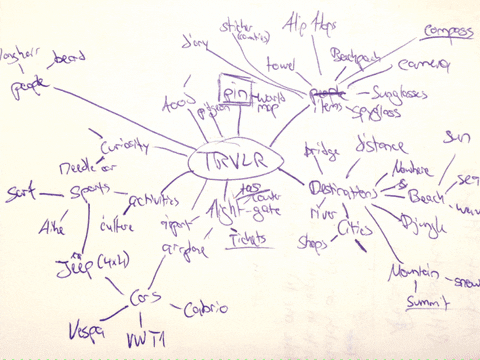 sticker
(countries)
Flip flops
compass
diary
long hair
beard
towel
Backpack
camera
people
food
pin
world
map
people
items
Sunglasses
spyglass
Curiosity
TRVLR
bridge
distance
sun
Nowhere
sea
Surf
Sports
activities
Destinations
Beach
culture
airport
flight
tower
gate
river
Djungle
Cities
airplane
Tickets
shops
Jeep (4x4)
Mountain
snow
Summit
Cars
Cabrio
Vespa
VW T1